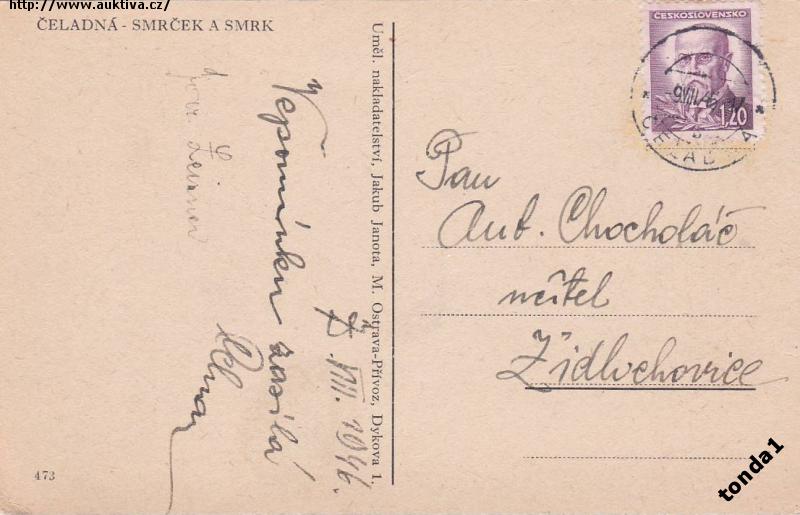 http://www.auktiva.cz/
ČELADNÁ - SMRČEK A SMRK
Vzpomínku zasílá
VIII. 1946.
473
Uměl. nakladatelství, Jakub Janota, M. Ostrava-Přívoz, Dykova 1.
ČESKOSLOVENSKO
1,20
Pan
Ant. Chocholáč
učitel
Židlochovice
tonda1